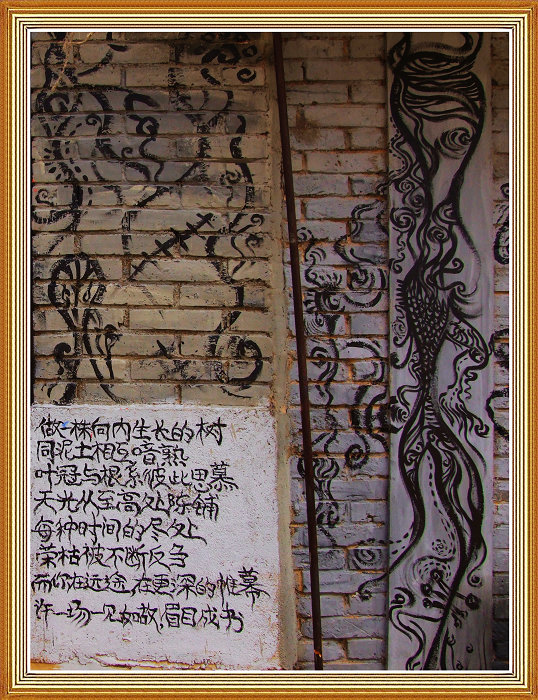 做一株向内生长的树
同泥土相互谙熟
叶冠与根系彼此思慕
天光从至高处陈铺
每种时间的尽处上
荣枯被不断反刍
而你在远途,在更深的帷幕
许一场一见如故,眉目成书